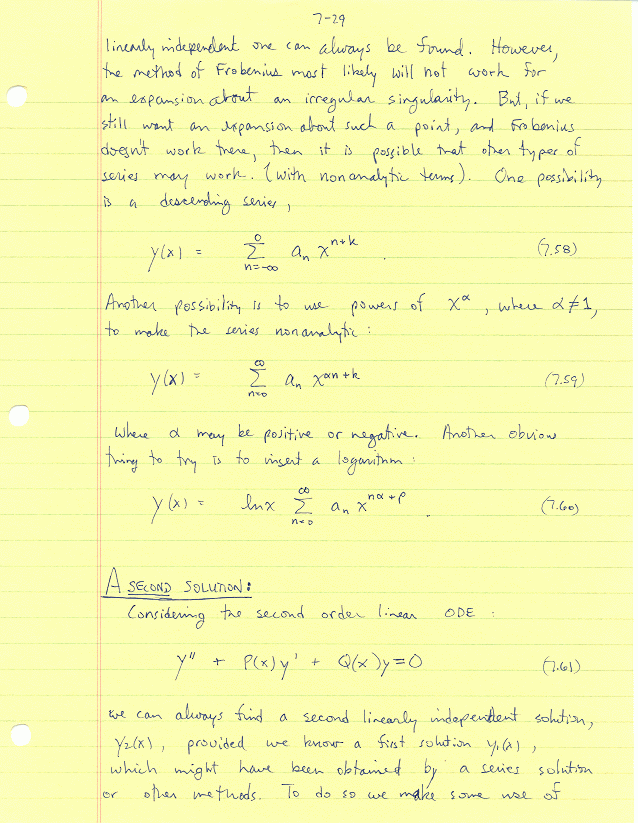 7-29
linearly independent one can always be found. However,
the method of Frobenius most likely will not work for
an expansion about an irregular singularity. But, if we
still want an expansion about such a point, and Frobenius
doesn't work there, then it is possible that other types of
series may work. (with nonanalytic terms). One possibility
is a descending series,
y(x) = ∑_{n=-∞}^{0} a_n x^{n+k} . (7.58)
Another possibility is to use powers of x^α, where α≠1,
to make the series nonanalytic:
y(x) = ∑_{n=0}^{∞} a_n x^{αn+k} (7.59)
where α may be positive or negative. Another obvious
thing to try is to insert a logarithm:
y(x) = lnx ∑_{n=0}^{∞} a_n x^{nα+ρ} . (7.60)
A SECOND SOLUTION:
Considering the second order linear ODE:
y'' + P(x)y' + Q(x)y=0 (7.61)
we can always find a second linearly independent solution,
y_2(x), provided we know a first solution y_1(x),
which might have been obtained by a series solution
or other methods. To do so we make some use of